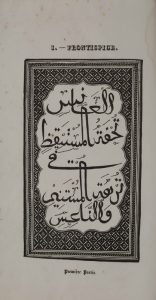 — FRONTISPICE.
العانس
تحفة المستيقظ
في
نزهة المستنيم
والناعس
Première Partie.